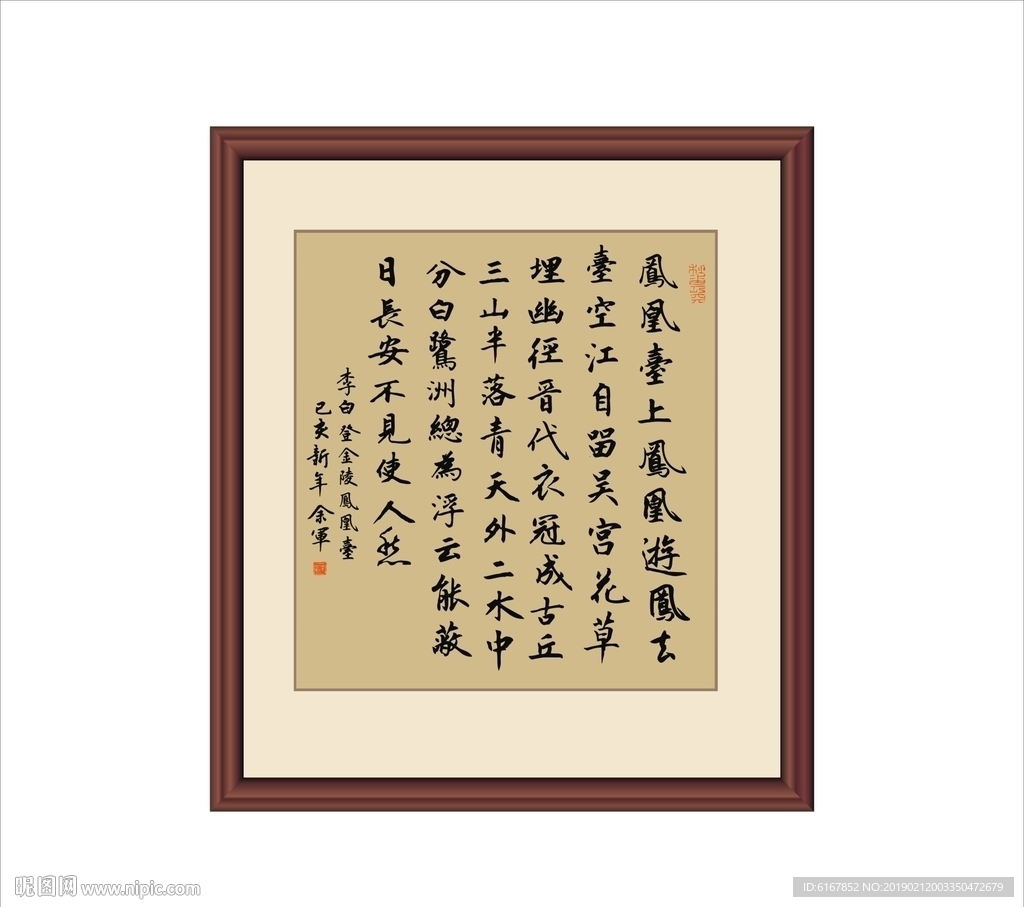 鳳凰臺上鳳凰遊鳳去
臺空江自留吴宫花草
埋幽徑晋代衣冠成古丘
三山半落青天外二水中
分白鷺洲總為浮云能蔽
日長安不見使人愁
李白登金陵鳳凰臺
己亥新年余軍
昵图网 www.nipic.com
ID:6167852 NO:20190212003350472679